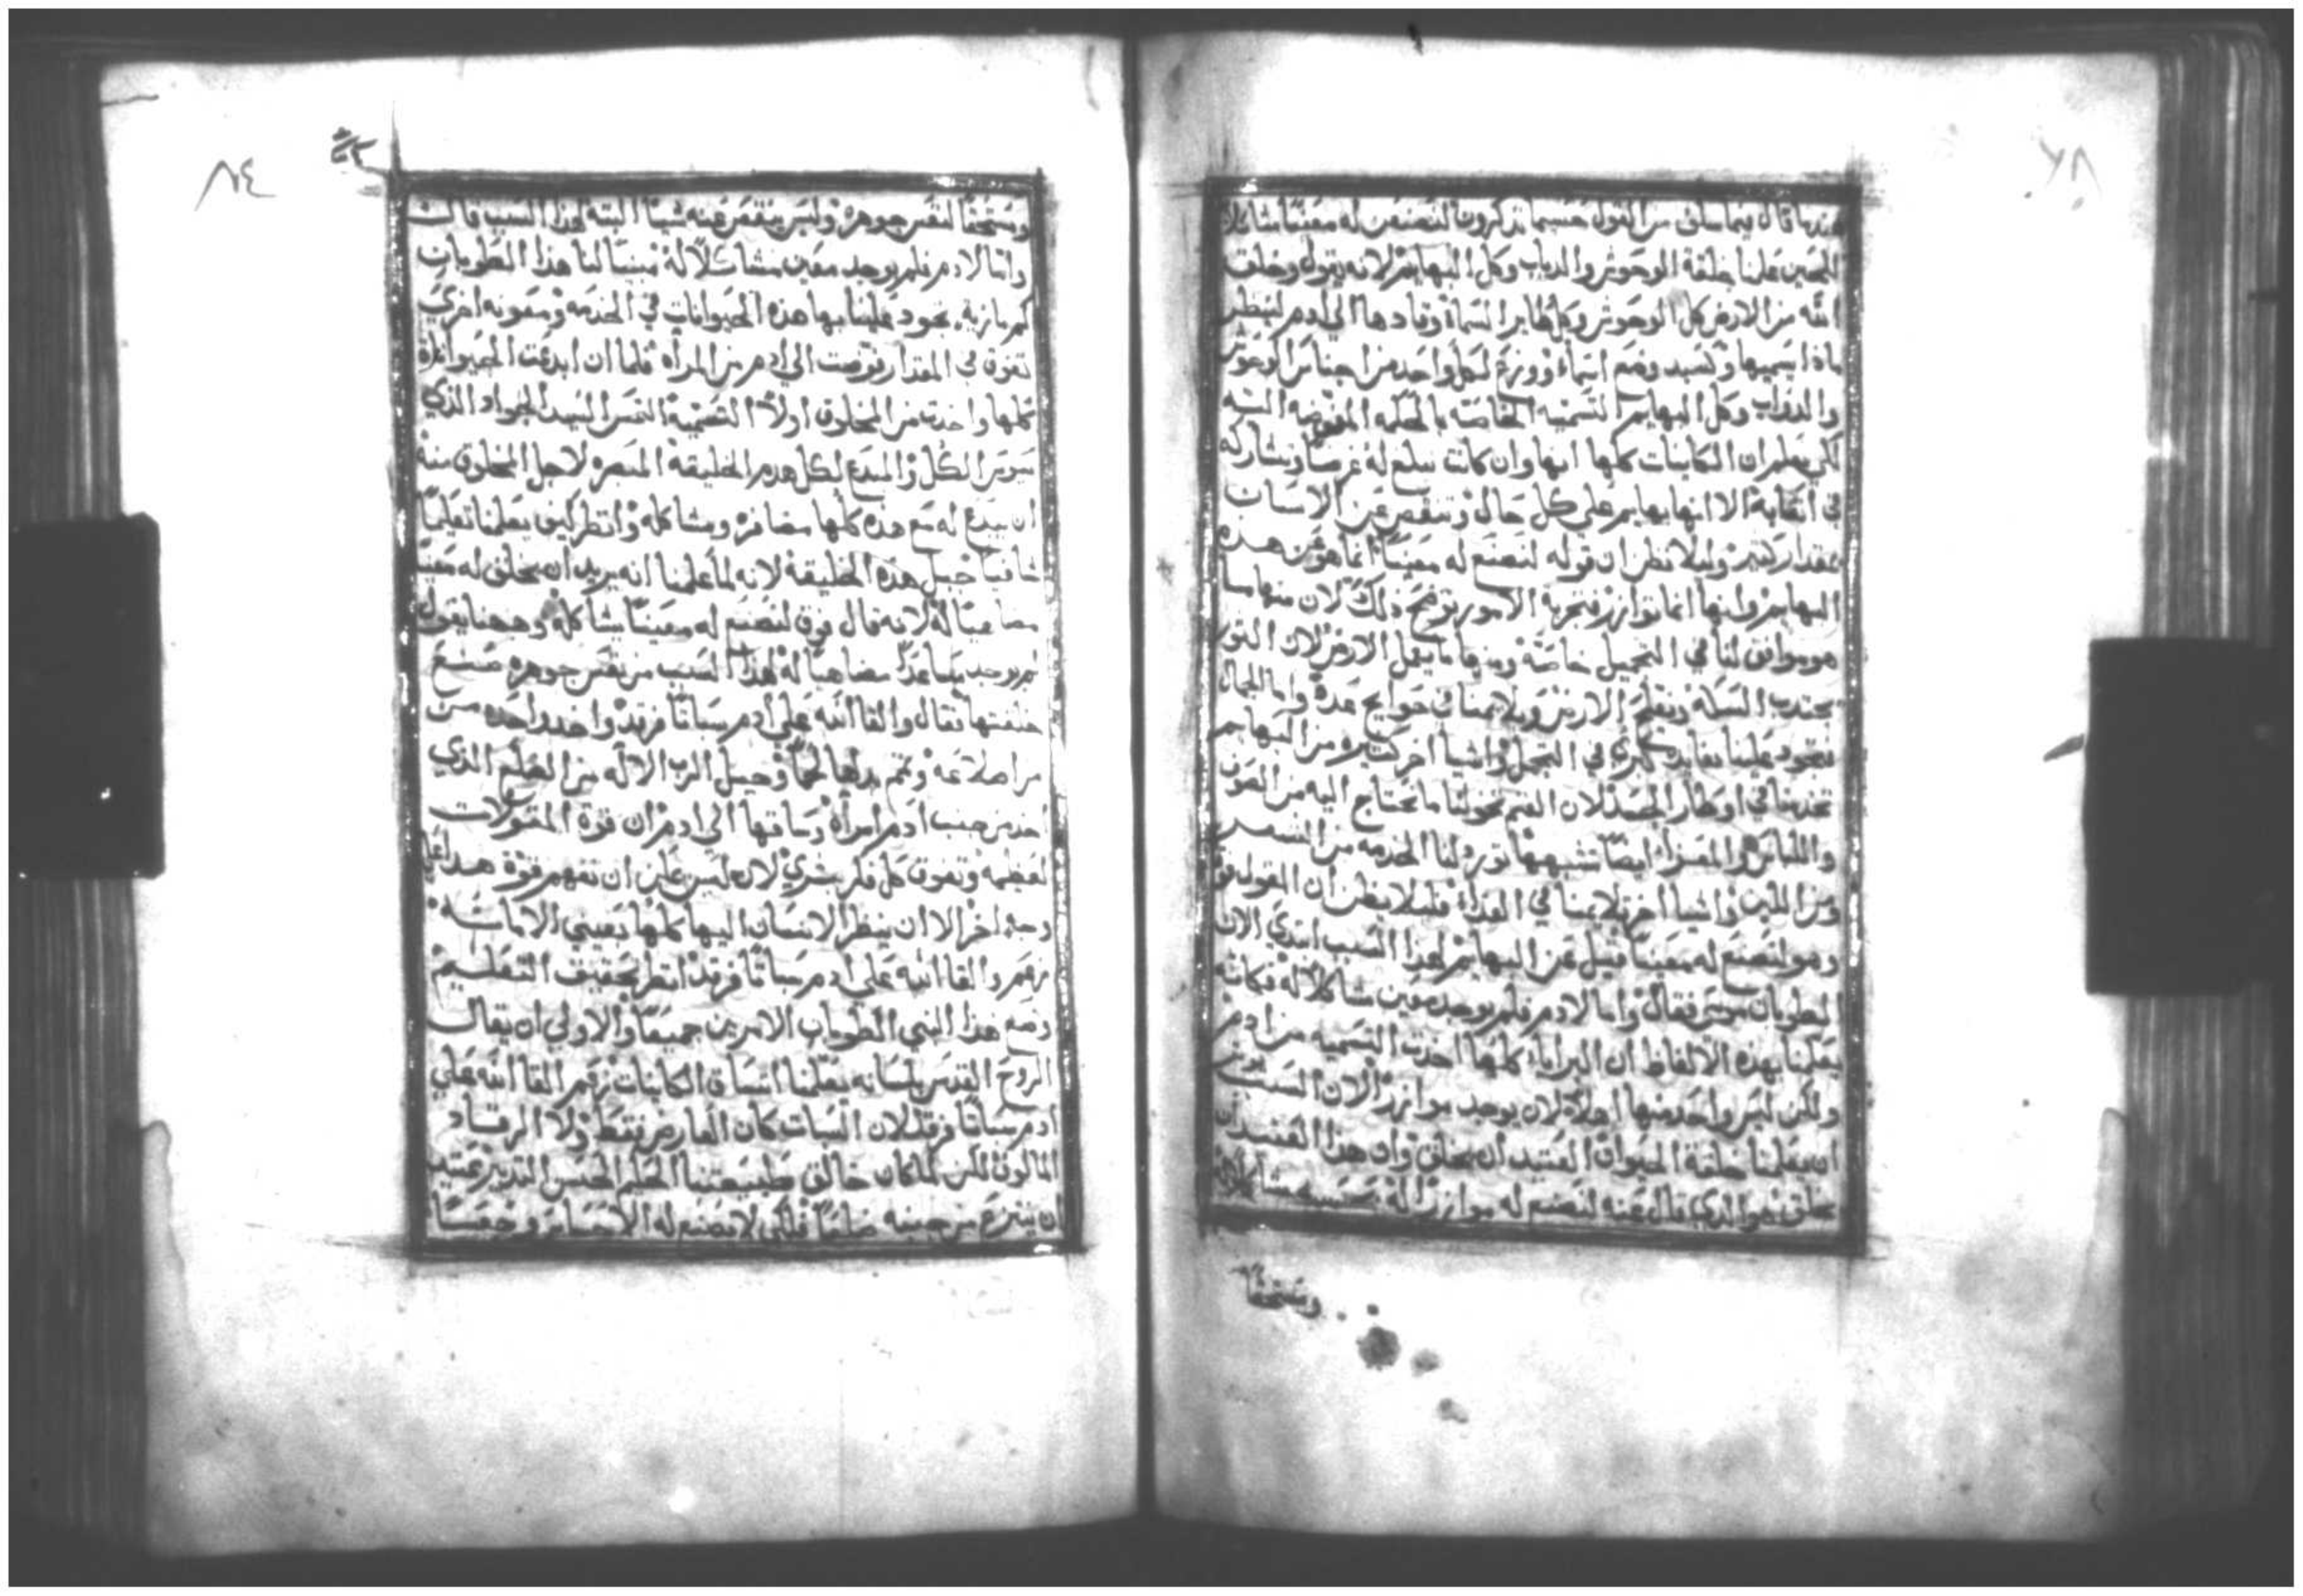 عندها قال فيما سلف من القول حسبما تذكرون لنصنعن له معينًا مشاكلا
للحين علمنا خلقة الوحوش والدباب وكل البهايم لانه يقول وخلق
الله من الارض كل الوحوش وكل طاير السماء وقادها الى ادم لينظر
ماذا يسميها وكسيد وضع اسماء ووزع لكل واحد من اجناس الوحوش
والدواب وكل البهايم التسميه الخاصة بالحكمه المفوضه اليه
لكي يعلم ان الكاينات كلها انها وان كانت تبلغ له غرضا وتشاركه
في اتعابه الا انها بهايم على كل حال وتنقص عن الانسان
بمقدار كثير وليلا نظن ان قوله لنصنع له معينًا انما هو عن هذه
البهايم وانها انما توازر فتجربة الامور توضح ذلك لان منها ما
هو موافق لنا في التحميل خاصة ومنها ما يعمل الارض لان الثور
يجتذب السكة ويفلح الارض ويلايمنا في حوايج عدة واما الجمال
فتجود علينا بفايدة كبرى في التحمل واشيا اخر كثيره من البهايم
تخدمنا في اوطار الجسد لان الغنم تخولنا ما نحتاج اليه من الصوف
واللباس والمعزا ايضًا تشبهها تورد لنا الخدمه من الشعر
ومن اللبن واشيا اخر تلايمنا في الغداء فليلا يظن ان القول فوق
وهو لنصنع له معينًا قيل عن البهايم لهذا السبب ابتدي الان
الطوبان موسى فقال واما لادم فلم يوجد معين مشاكلا له فكانه
يعلمنا بهذه الالفاظ ان البرايا كلها اخذت التسميه من ادم
ولكن ليس واحد منها اهلا لان يوجد موازرا لان السبب
ان يعلمنا خلقة الحيوان العتيد ان يخلق وان هذا العتيد ان
يخلق هو الذي قال عنه لنصنع له موازرًا له
ومستحقًا
ومستحقًا لنفس جوهره وليس ينقص عنه شيا البته لهذا السبب قالت
واما لادم فلم يوجد معين مشاكلا له مبينا لنا هذا الطوبان
تجود علينا بها هذه الحيوانات في الخدمه ومعونه اخرى
تفوق في المقدار فوضت الى ادم من المراه فلما ان ابدعت الحيوانات
كلها واخدت من المخلوق اولا التسمية التمس السيد الجواد الذي
الكل والمبدع لكل هدم الخليقه المبصره لاجل المخلوق منه
ان يبدع له مع هذه كلها مضافره ومشاكله وانظر كيف يعلمنا تعليمًا
شافيًا جبل هذه الخليقة لانه لما علمنا انه يريد ان يخلق له معينًا
مضاهيًا له لانه قال فوق لنصنع له معينًا يشاكله وههنا يقول
لم يوجد مساعدًا مضاهيًا له لهذا السبب من نفس جوهره صنع
خلقتها فقال والقا الله على ادم سباتًا فرقد واخد واحده من
من اضلاعه وتمم بدلها لحمًا وجبل الرب الاله من الضلع الذي
اخد من جنب ادم امراه وساقها الى ادم ان قوة المقولات
لعظيمه وتفوق كل فكر بشري لانه ليس يمكن ان تفهم قوة هذا على
وجه اخر الا ان ينظر الانسان اليها كلها بعيني الامانه
زعم والقا الله على ادم سباتًا فرقد انظر تحقيق التعليم
وضع هذا النبي الطوبان الامرين جميعًا والاولى ان يقال
الروح القدس بلسانه يعلمنا اتساق الكاينات زعم القا الله على
ادم سباتًا فرقد لان السبات كان العارض فقط ولا الرقاد
المالوف لكن لما كان خالق طبيعتنا الحكيم الحسن التدبير عتيد
ان ينتزع من جنبه ضلعًا فلكي لا تصنع له الاحساس وجعًا